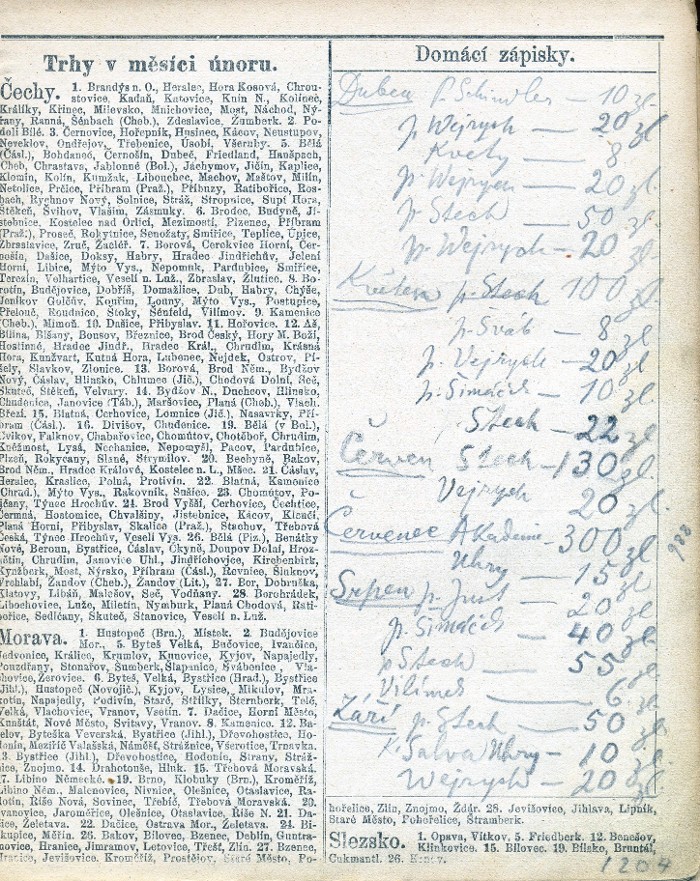 Trhy v měsíci únoru.
Čechy. 1. Brandýs n. O., Heralec, Hora Kosová, Chrou-
stovice, Kadaň, Katovice, Knín N., Kolinec,
Králíky, Křinec, Milevsko, Mnichovice, Most, Náchod, Ný-
řany, Ranná, Šénbach (Cheb.), Zdeslavice, Žumberk. 2. Po-
dolí Bílé. 3. Černovice, Hořepník, Husinec, Kácov, Neustupov,
Neveklov, Ondřejov, Třebenice, Úsobí, Všeruby. 5. Bělá
(Čásl.), Bohdaneč, Černošín, Dubeč, Friedland, Haněpach,
Cheb, Chrastava, Jablonné (Bol.), Jáchymov, Jičín, Kaplice,
Klomín, Kolín, Kumžak, Libouchec, Machov, Maštov, Milín,
Netolice, Prčice, Příbram (Praž.), Příbuzy, Ratibořice, Ros-
bach, Rychnov Nový, Solnice, Stráž, Stropnice, Supí Hora,
Štěkeň, Švihov, Vlašim, Zásmuky. 6. Brodec, Budyně, Ji-
stebnice, Kostelec nad Orlicí, Mezimostí, Plzenec, Příbram
(Praž.), Proseč, Rokytnice, Senožaty, Smiřice, Teplice, Úpice,
Zbraslavice, Zruč, Žacléř. 7. Borová, Cerekvice Horní, Čer-
nošín, Dašice, Doksy, Habry, Hradec Jindřichův, Jelení
Horní, Libice, Mýto Vys., Nepomuk, Pardubice, Smiřice,
Terezín, Velhartice, Veselí n. Luž., Zbraslav, Žlutice. 8. Bo-
rotín, Budějovice, Dobříš, Domažlice, Dub, Habry, Chýše,
Jeníkov Golčův, Kouřim, Louny, Mýto Vys., Postupice,
Přelouč, Roudnice, Stoky, Šénfeld, Vilímov. 9. Kamenice
(Cheb.), Mimoň. 10. Dašice, Přibyslav. 11. Hořovice. 12. Aš,
Bílina, Blšany, Bousov, Březnice, Brod Český, Hory M. Boží,
Hostinné, Hradec Jindř., Hradec Král., Chrudim, Krásná
Hora, Kunžvart, Kutná Hora, Lubenec, Nejdek, Ostrov, Pí-
šely, Slavkov, Zlonice. 13. Borová, Brod Něm., Bydžov
Nový, Čáslav, Hlinsko, Chlumec (Jič.), Chodová Dolní, Seč,
Skuteč, Štěkeň, Velvary. 14. Bydžov N., Duchcov, Hlinsko,
Chudenice, Janovice (Táb.), Maršovice, Planá (Cheb.), Vlach.
Březí. 15. Blatná, Cerhovice, Lomnice (Jič.), Nasavrky, Pří-
bram (Čásl.). 16. Divišov, Chudenice. 19. Bělá (v Bol.),
Cvikov, Falknov, Chabařovice, Chomútov, Chotěboř, Chrudim,
Kněžmost, Lysá, Nechanice, Nepomyšl, Pacov, Pardubice,
Plzeň, Rokycany, Slané, Strymilov. 20. Bechyně, Bakov,
Brod Něm., Hradec Králové, Kostelec n. L., Mšec. 21. Čáslav,
Heralec, Kraslice, Polná, Protivín. 22. Blatná, Kamenice
(Chrud.), Mýto Vys., Rakovník, Sušice. 23. Chomútov, Po-
jčany, Týnec Hrochův. 24. Brod Vyšší, Cerhovice, Čechtice,
Čermná, Hostomice, Chvalšiny, Jistebnice, Kácov, Klenčí,
Planá Horní, Přibyslav, Skalice (Praž.), Stachov, Třebová
Česká, Týnec Hrochův, Veselí Vys. 26. Bělá (Plz.), Benátky
Nové, Beroun, Bystřice, Čáslav, Čkyně, Doupov Dolní, Hroz-
nětín, Chrudim, Janovice Uhl., Jindřichovice, Kirchenbirk,
Kynžberk, Most, Nýrsko, Příbram (Čásl.), Řevnice, Šluknov,
Vrchlabí, Žandov (Cheb.), Žandov (Lit.). 27. Bor, Dobruška,
Klatovy, Libáň, Malešov, Seč, Vodňany. 28. Borohrádek,
Libochovice, Luže, Miletín, Nymburk, Planá Chodová, Rati-
bořice, Sedlčany, Skuteč, Stanovice, Veselí n. Luž.
Morava. 1. Hustopeč (Brn.), Místek. 2. Budějovice
Mor., 5. Byteš Velká, Bučovice, Ivančice,
Jedvonice, Králice, Krumlov, Kunovice, Kyjov, Napajedly,
Pouzdřany, Stonařov, Šumberk, Šlapanice, Svábenice, Vla-
chovice, Žerovice. 6. Byteš, Velká, Bystřice (Hrad.), Bystřice
(Jihl.), Hustopeč (Novojič.), Kyjov, Lysice, Mikulov, Mra-
kotín, Napajedly, Podivín, Staré, Střílky, Šternberk, Telč,
Velká, Vlachovice, Vranov, Vsetín. 7. Dačice, Horní Město,
Kunštát, Nové Město, Svitavy, Vranov. 8. Kamenice. 12. Ba-
čelov, Byteška Veverská, Bystřice (Jihl.), Dřevohostice, Ho-
donín, Meziříč Valašská, Náměšť, Strážnice, Všerotice, Trnavka.
13. Bystřice (Jihl.), Dřevohostice, Hodonín, Strany, Stráž-
nice, Znojmo. 14. Drahotouše, Hluk. 15. Třebová Moravská.
17. Libino Německé. 19. Brno, Klobuky (Brn.), Kroměříž,
Libino Něm., Malenovice, Nivnice, Olešnice, Otaslavice, Ra-
kotín, Říše Nová, Sovinec, Třebíč, Třebová Moravská. 20.
Ivanovice, Jaroměřice, Olešnice, Otaslavice, Říše N. 21. Da-
čice, Želetava. 22. Dačice, Ostrava Mor., Želetava. 24. Bi-
skupice, Měřín. 26. Bakov, Bílovec, Bzenec, Deblín, Guntra-
movice, Hranice, Jimramov, Letovice, Třešť, Zlín. 27. Bzenec,
Hranice, Jevišovice, Kroměříž, Prostějov, Staré Město, Po-
Domácí zápisky.
Duben p. Schindler — 10 zl.
p. Wejrych — 20 zl
Květy — 8
p. Wejrych — 20 zl.
p. Stech — 50 zl
p. Wejrych — 20 zl
Květen p. Stech 100 zl
p. Šváb — 8 zl
p. Vejrych — 20 zl
p. Šimáček — 10 zl.
Stech — 22 zl
Červen Stech — 130 zl
Vejrych 20 zl
Červenec Akademie 300 zl
988
Uhry — 15 zl
Srpen p. Just — 20 zl
p. Šimáček — 40 zl
p Stech — 55 zl
Vilímek — 6 zl
Září p. Stech — 50 zl
K. Salva Uhry — 10 zl
Wejrych — 20 zl
hořelice, Zlín, Znojmo, Ždár. 28. Jevišovice, Jihlava, Lipník,
Staré Město, Pohořelice, Štramberk.
Slezsko. 1. Opava, Vítkov. 5. Friedberk. 12. Benešov,
Klinkovice. 15. Bílovec. 19. Bílsko, Bruntál,
Cukmantl. 26.
1204